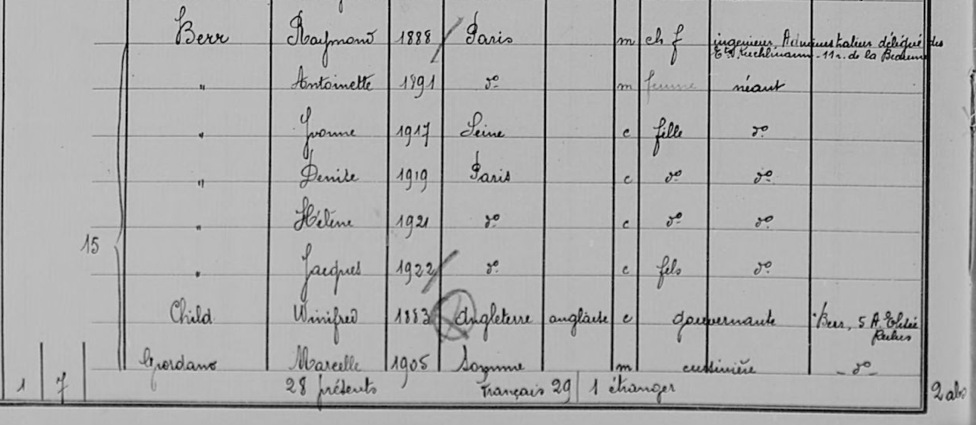 Berr Raymond 1888 Paris m ch f ingénieur, Administrateur délégué des
Ets Kuhlmann - 11 r. de la Baume
" Antoinette 1891 do m femme néant
" Yvonne 1917 Seine c fille do
" Denise 1919 Paris c do do
" Hélène 1921 do c do do
15 " Jacques 1922 do c fils do
Child Winifred 1883 Angleterre anglaise c gouvernante Berr, 5 A. Elisée
Reclus
Marcelle 1905 m cuisinière do
1 7 28 présents français 29 1 étranger 2 abs